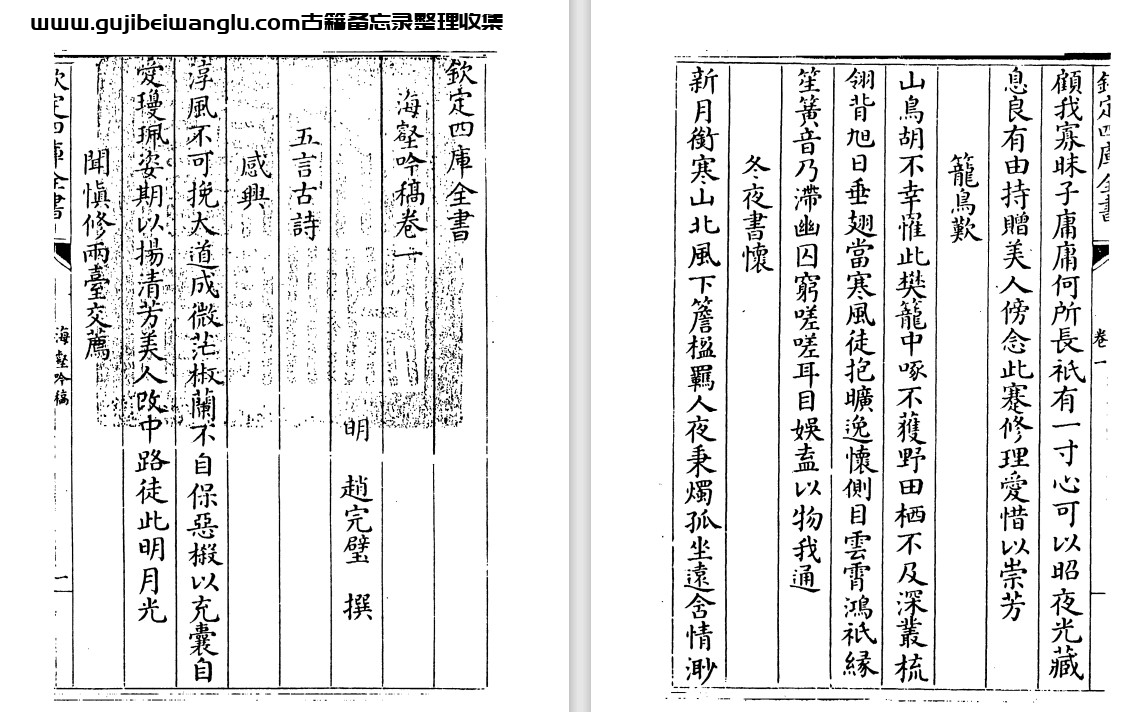 www.gujibeiwanglu.com古籍备忘录整理收集
欽定四庫全書
海壑吟稿卷一
明 趙完璧 撰
五言古詩
感興
淳風不可挽大道成微茫椒蘭不自保惡樧以充囊自
愛瓊珮姿期以揚清芳美人改中路徒此明月光
聞愼修兩臺交薦
欽定四庫全書 海壑吟稿 一
欽定四庫全書 卷一
顧我寡昧子庸庸何所長祇有一寸心可以昭夜光藏
息良有由持贈美人傍念此蹇修理愛惜以崇芳
籠鳥歎
山鳥胡不幸罹此樊籠中啄不獲野田栖不及深叢梳
翎背旭日垂翅當寒風徒抱曠逸懷側目雲霄鴻祇縁
笙簧音乃滯幽囚窮嗟嗟耳目娛盍以物我通
冬夜書懷
新月銜寒山北風下簷楹羈人夜秉燭孤坐遠舍情渺